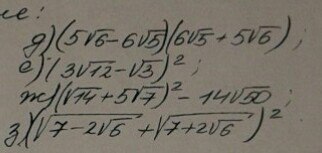 ле:
д) (5√6-6√5)(6√5+5√6);
е) (3√12-√3)²;
ж) (√14+5√7)²-14√50;
з) (√7-2√6+√7+2√6)²